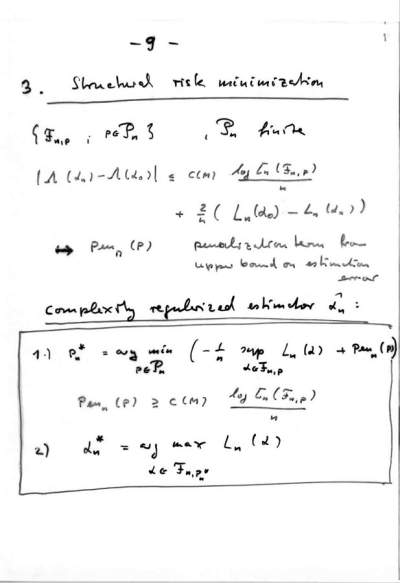 - 9 -
1
3. Structural risk minimization
{ F_{n,p} ; p∈P_n } , P_n finite
|Λ(α_n) - Λ(α_0)| ≤ C(M) log C_n(F_{n,p}) / n
+ 2/n ( L_n(α_0) - L_n(α_n) )
↔ Pen_n(p) penalization term from
upper bound on estimation
error
complexity regularized estimator α̂_n :
1.) p_n^* = arg min_{p∈P_n} ( - 1/n sup_{α∈F_{n,p}} L_n(α) + Pen_n(p) )
Pen_n(p) ≥ C(M) log C_n(F_{n,p}) / n
2) α_n^* = arg max_{α∈F_{n,p_n^*}} L_n(α)